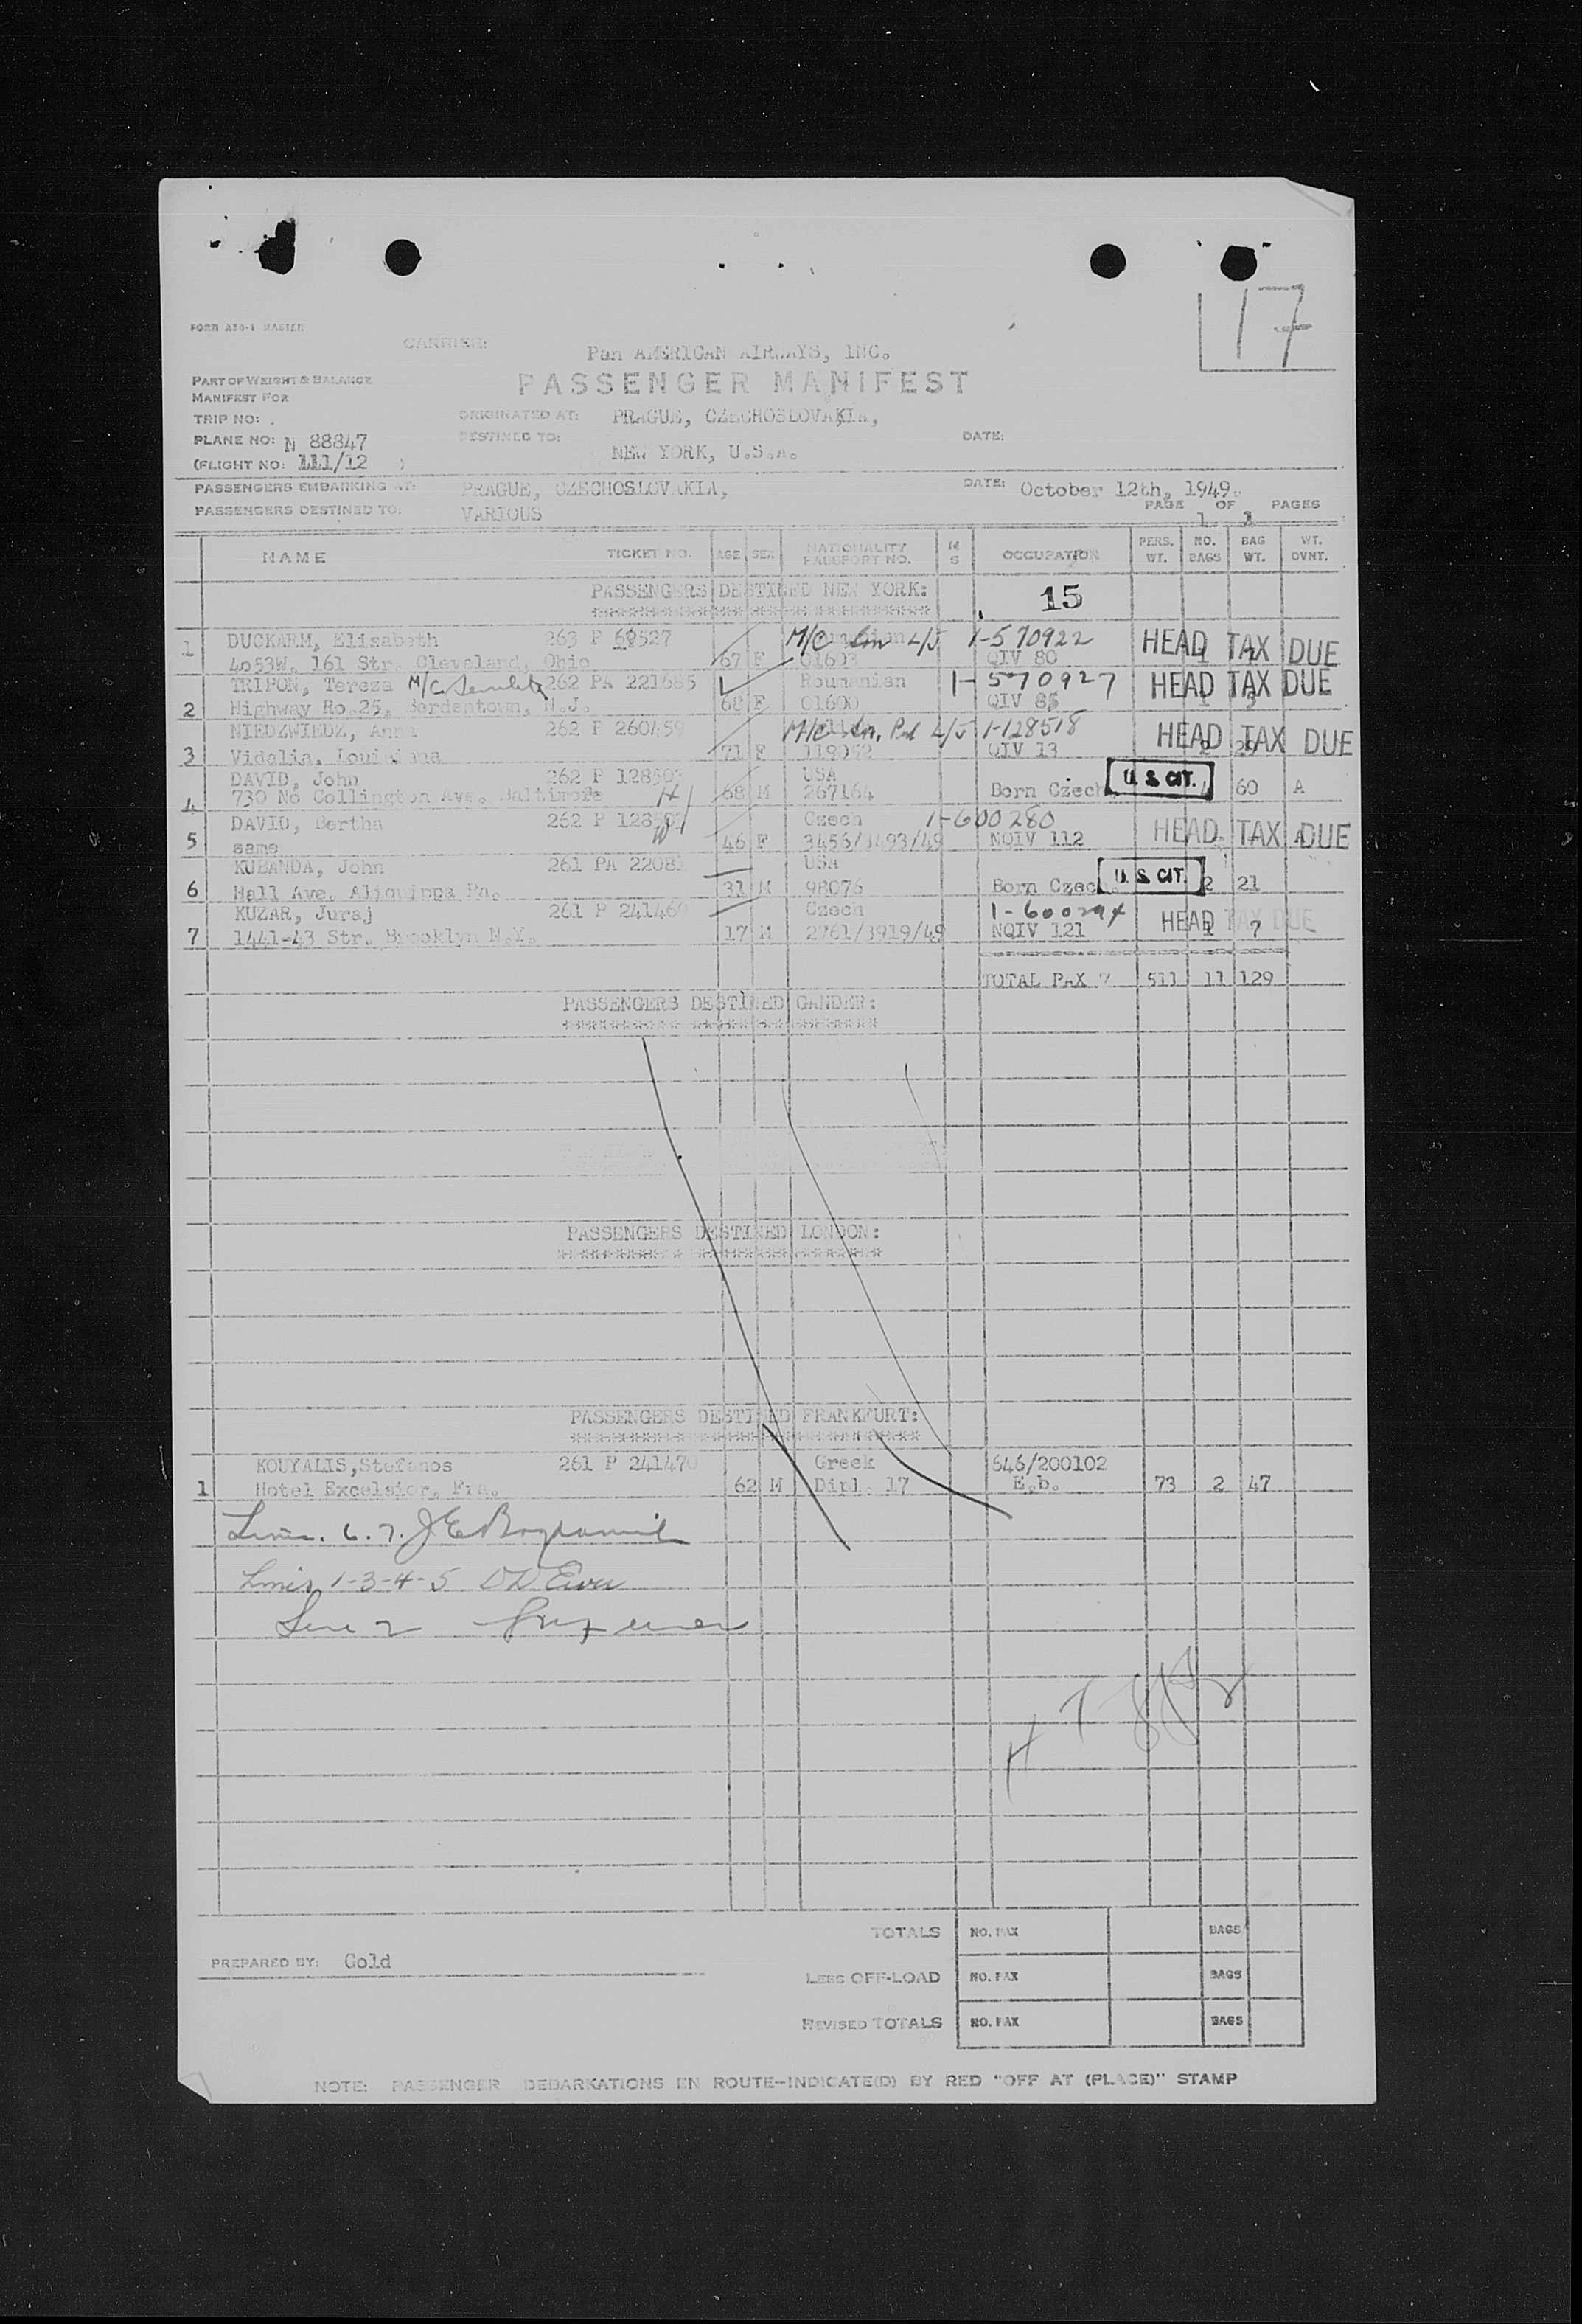 17
FORM ASG-1 MASTER
CARRIER: Pan AMERICAN AIRWAYS, INC.
PART OF WEIGHT & BALANCE
MANIFEST FOR
PASSENGER MANIFEST
TRIP NO:
ORIGINATED AT: PRAGUE, CZECHOSLOVAKIA,
PLANE NO: N 88847
DESTINED TO: NEW YORK, U.S.A. DATE:
(FLIGHT NO: 111/12 )
PASSENGERS EMBARKING AT: PRAGUE, CZECHOSLOVAKIA, DATE: October 12th, 1949.
PASSENGERS DESTINED TO: VARIOUS PAGE 1 OF 3 PAGES
NAME TICKET NO. AGE SEX NATIONALITY PASSPORT NO. M S OCCUPATION PERS. WT. NO. BAGS BAG WT. WT. OVNT.
PASSENGERS DESTINED NEW YORK: 15
DUCKARM, Elisabeth 263 P 68527 M/C L/5 1-570922 HEAD TAX DUE
1 4053W. 161 Str. Cleveland, Ohio 67 F 01603 QIV 80
TRIPON, Tereza M/C 262 PA 221685 Roumanian 1-570927 HEAD TAX DUE
2 Highway Ro 25, Bordentown, N.J. 68 F 01600 QIV 85
NIEDZWIEDZ, Anna 262 P 260459 M/C L/5 1-128518 HEAD TAX DUE
3 Vidalia, Louisiana 71 F 119052 QIV 13
DAVID, John 262 P 128503 USA U. S. CIT.
4 730 No Collington Ave. Baltimore H 68 M 267164 Born Czech. 60 A
DAVID, Bertha 262 P 128 W Czech 1-600280 HEAD TAX DUE
5 same 46 F 3456/3493/49 NQIV 112 A
KUBANDA, John 261 PA 2208 USA U. S. CIT.
6 Hall Ave. Aliquippa Pa. 31 M 98076 Born Czech. 2 21
KUZAR, Juraj 261 P 241469 Czech 1-600294 HEAD TAX DUE
7 1441-43 Str. Brooklyn N.Y. 17 M 2761/3919/49 NQIV 121 7
TOTAL PAX 7 511 11 129
PASSENGERS DESTINED GANDER:
PASSENGERS DESTINED LONDON:
PASSENGERS DESTINED FRANKFURT:
KOUYALIS, Stefanos 261 P 241470 Greek 646/200102
1 Hotel Excelsior, Fra. 62 M Dipl. 17 E.b. 73 2 47
6. 7.
Lines 1-3-4-5
Line 2
H T
TOTALS NO. PAX BAGS
PREPARED BY: Gold
LESS OFF-LOAD NO. PAX BAGS
REVISED TOTALS NO. PAX BAGS
NOTE: PASSENGER DEBARKATIONS EN ROUTE-INDICATE(D) BY RED "OFF AT (PLACE)" STAMP